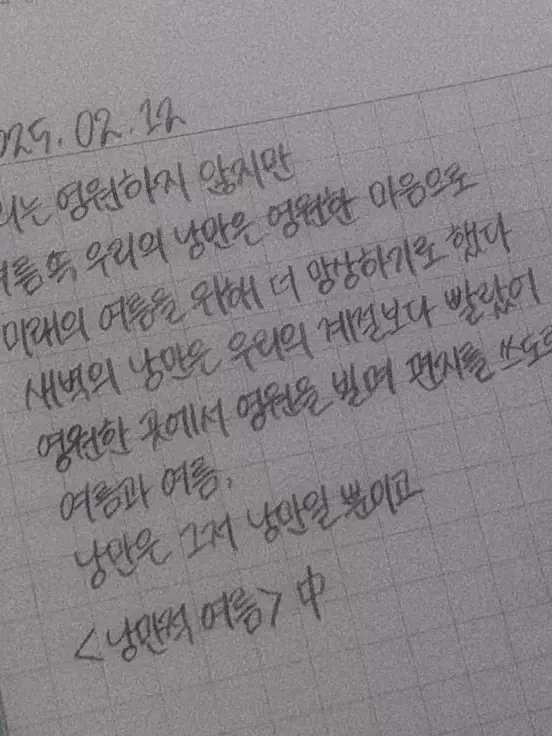 025. 02. 12
리는 영원하지 않지만
여름 뚝 우리의 낭만은 영원한 마음으로
미래의 여름을 위해 더 망상하기로 했다
새벽의 낭만은 우리의 계절보다 빨랐어
영원한 곳에서 영원을 빌며 편지를 쓰도록
여름과 여름,
낭만은 그저 낭만일 뿐이고
<낭만적 여름> 中